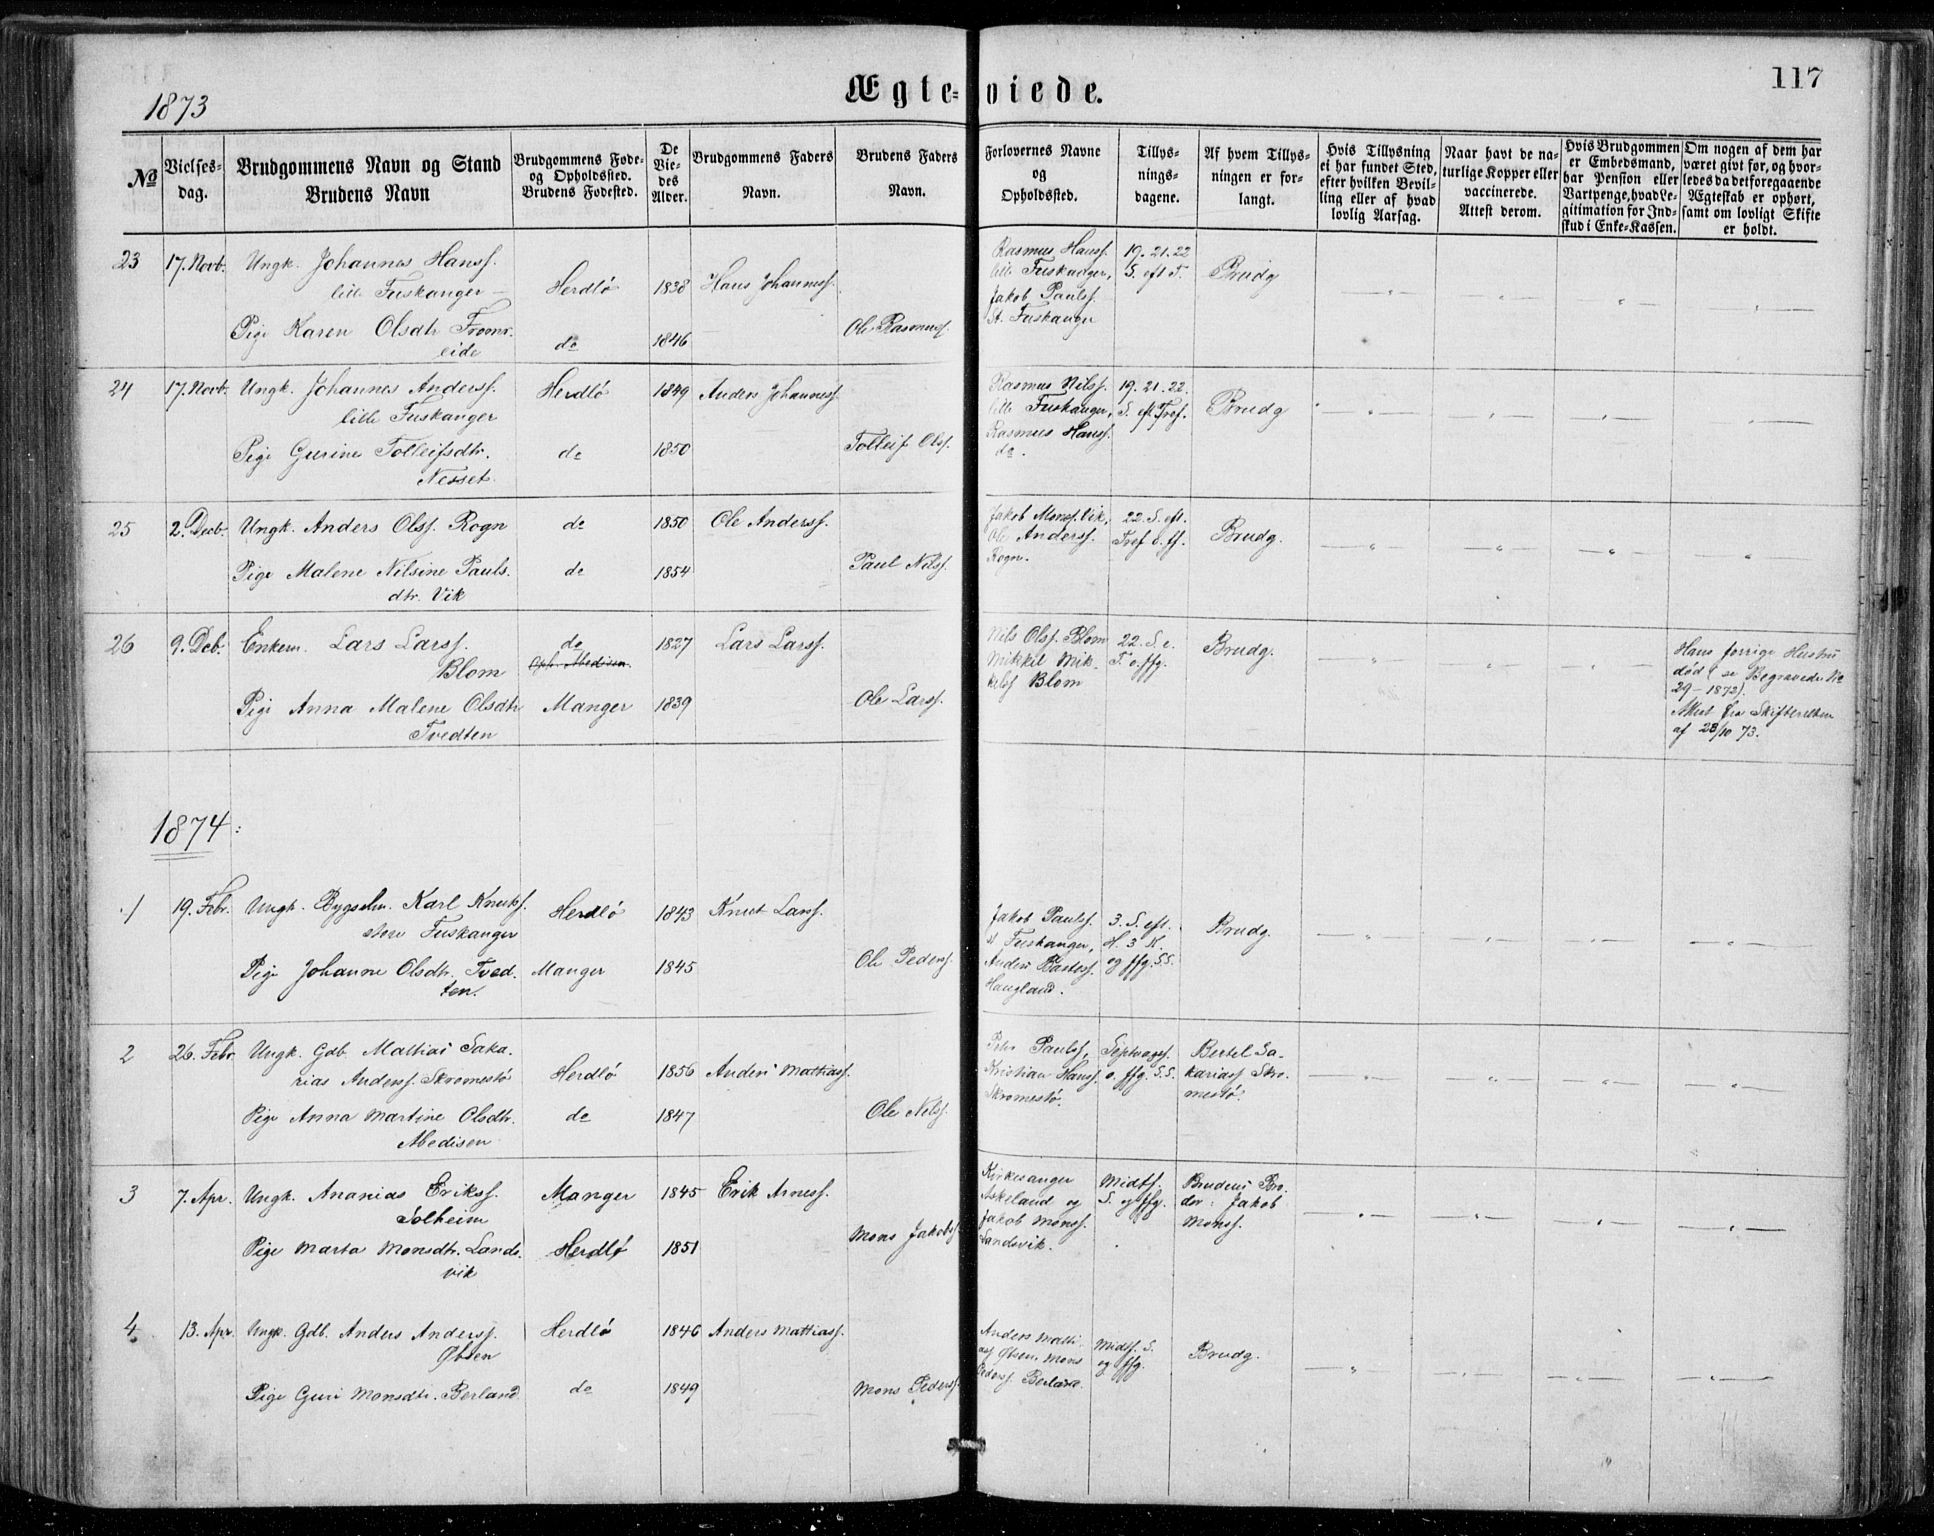 117
Ægte-viede.
1873
No
Vielses-
dag.
Brudgommens Navn og Stand
Brudens Navn
Brudgommens Føde-
og Opholdssted.
Brudens Fødested.
De
Vie-
des
Alder.
Brudgommens Faders
Navn.
Brudens Faders
Navn.
Forlovernes Navne
og
Opholdssted.
Tillys-
nings-
dagene.
Af hvem Tillys-
ningen er for-
langt.
Hvis Tillysning
ei har fundet Sted,
efter hvilken Bevil-
ling eller af hvad
lovlig Aarsag.
Naar havt de na-
turlige Kopper eller
vaccinerede.
Attest derom.
Hvis Brudgommen
er Embedsmand,
har Pension eller
Vartpenge, hvad Le-
gitimation for Ind-
skud i Enke-Kassen.
Om nogen af dem har
været givt før, og hvor-
ledes da det foregaaende
Ægteskab er ophørt,
samt om lovligt Skifte
er holdt.
23
17. Novb.
Ungk. Johannes Hanss.
lille Fuskanger
Pige Karen Olsdtr From-
reide
Herdlø
do
1838
1846
Hans Johanness.
Ole Rasmuss.
Rasmus Hanss.
lille Fuskanger,
Jakob Paulss.
St. Fuskanger
19. 21. 22
S. eft T.
Brudg
24
17. Novb.
Ungk. Johannes Anderss.
lille Fuskanger
Pige Gurine Tolleifsdtr.
Nesset
Herdlø
do
1849
1850
Anders Johanness.
Tolleif Olss.
Rasmus Nilss.
lille Fuskanger,
Rasmus Hanss.
do.
19. 21. 22.
S. eft Tref.
Brudg
25
2. Decb.
Ungk. Anders Olss. Rogn
Pige Malene Nilsine Pauls.
dtr. Vik
do
do
1850
1854
Ole Anderss.
Paul Nilss.
Jakob Monss. Vik,
Ole Anderss.
Rogn.
22. S. eft.
Tref o. ff.
Brudg.
26
9. Deb.
Enkem. Lars Larss.
Blom
Pige Anna Malene Olsdtr
Tvedten
do
Oph. Abedisen.
Manger
1827
1839
Lars Larss.
Ole Larss.
Nils Olss. Blom
Mikkel Mik-
kelss Blom
22. S. e.
T. o. ffg.
Brudg.
Hans forrige Hustru
død (se Begravede No
29 - 1872).
Attest fra Skifteretten
af 28/10 73.
1874:
1
19. Febr.
Ungk. Bygselm. Karl Knuts.
store Fuskanger
Pige Johanne Olsdtr. Tved-
ten.
Herdlø
Manger
1843
1845
Knut Larss.
Ole Pederss.
Jakob Paulss.
st Fuskanger,
Anders Bartoss.
Haugland.
3. S. eft.
H. 3 K.
og ffg. S.S.
Brudg.
2
26. Febr
Ungk. Gdb. Mathias Saka-
rias Anderss. Skromestø
Pige Anna Martine Olsdtr.
Abedisen
Herdlø
do
1856
1847
Anders Mattiass.
Ole Nilss.
Peter Paulss,
Kristian Hanss.
Skromestø.
Septvagss.
o. ffg. S.S.
Bertel Sa-
kariass Skro-
mestø.
3
7. Apr.
Ungk. Ananias Erikss.
Solheim
Pige Marta Monsdtr. Lands-
vik
Manger
Herdlø
1845
1851
Erik Arness.
Mons Jakobss
Kirkesanger
Askeland og
Jakob Monss.
Landsvik.
Midtf.
S. og ffg.
Brudens Bro-
der: Jakob
Monss.
4
13. Apr.
Ungk. Gdb. Anders Anderss.
Øbsen
Pige Guri Monsdtr. Berland
Herdlø
do
1846
1849
Anders Mattiass.
Mons Pederss.
Anders Matti-
ass Øbsen. Mons
Pederss. Berland.
Midtf. S.
og ffg.
Brudg.